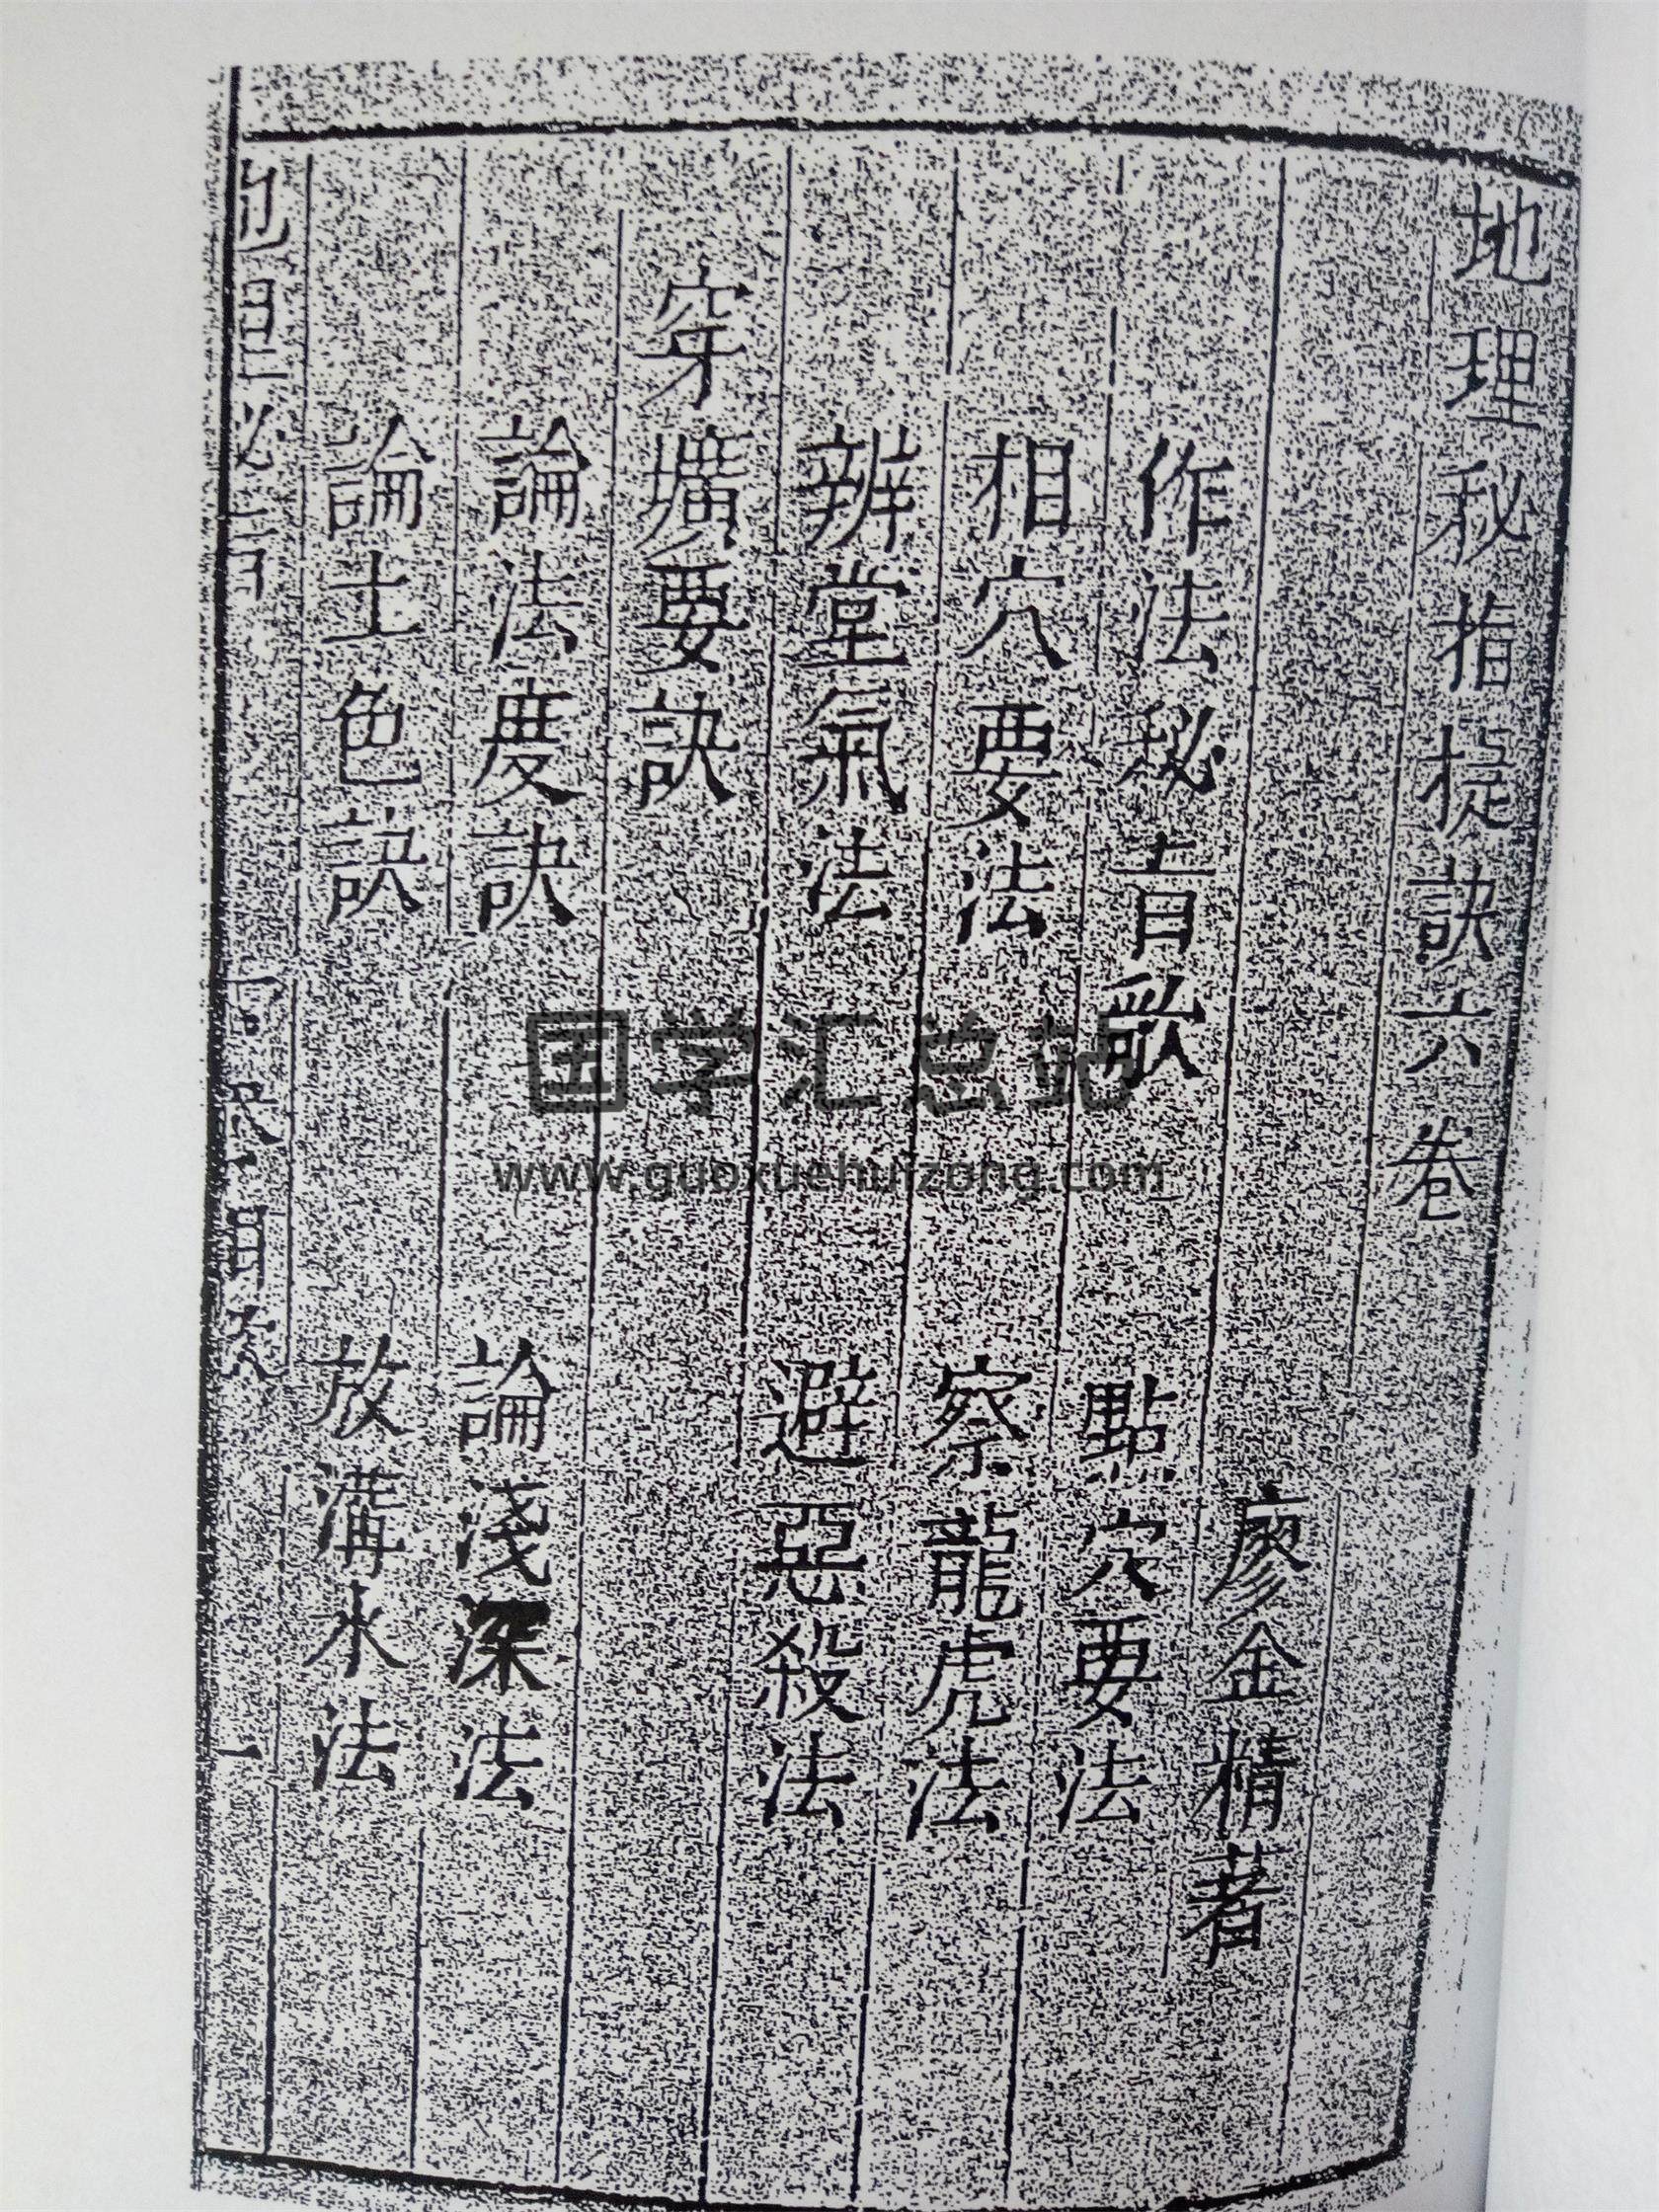 地理秘指捷訣六卷
廖金精著
作法秘旨歌　點穴要法
相穴要法　察龍虎法
辨堂氣法　避惡殺法
穿壙要訣
論法度訣　論淺深法
論土色訣　放溝水法
一
国学汇总站
www.guoxuehuizong.com